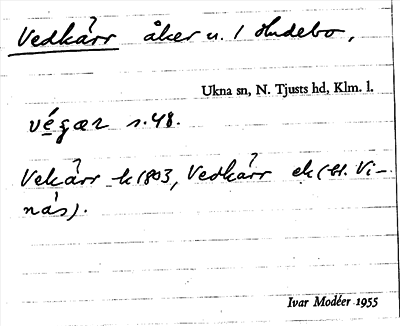 Vedkärr åker u. 1 Hudebo,
Ukna sn, N. Tjusts hd, Klm. l.
végær s. 48.
Vekärr k 1803, Vedkärr ek (bl. Vi-
nås).
Ivar Modéer 1955